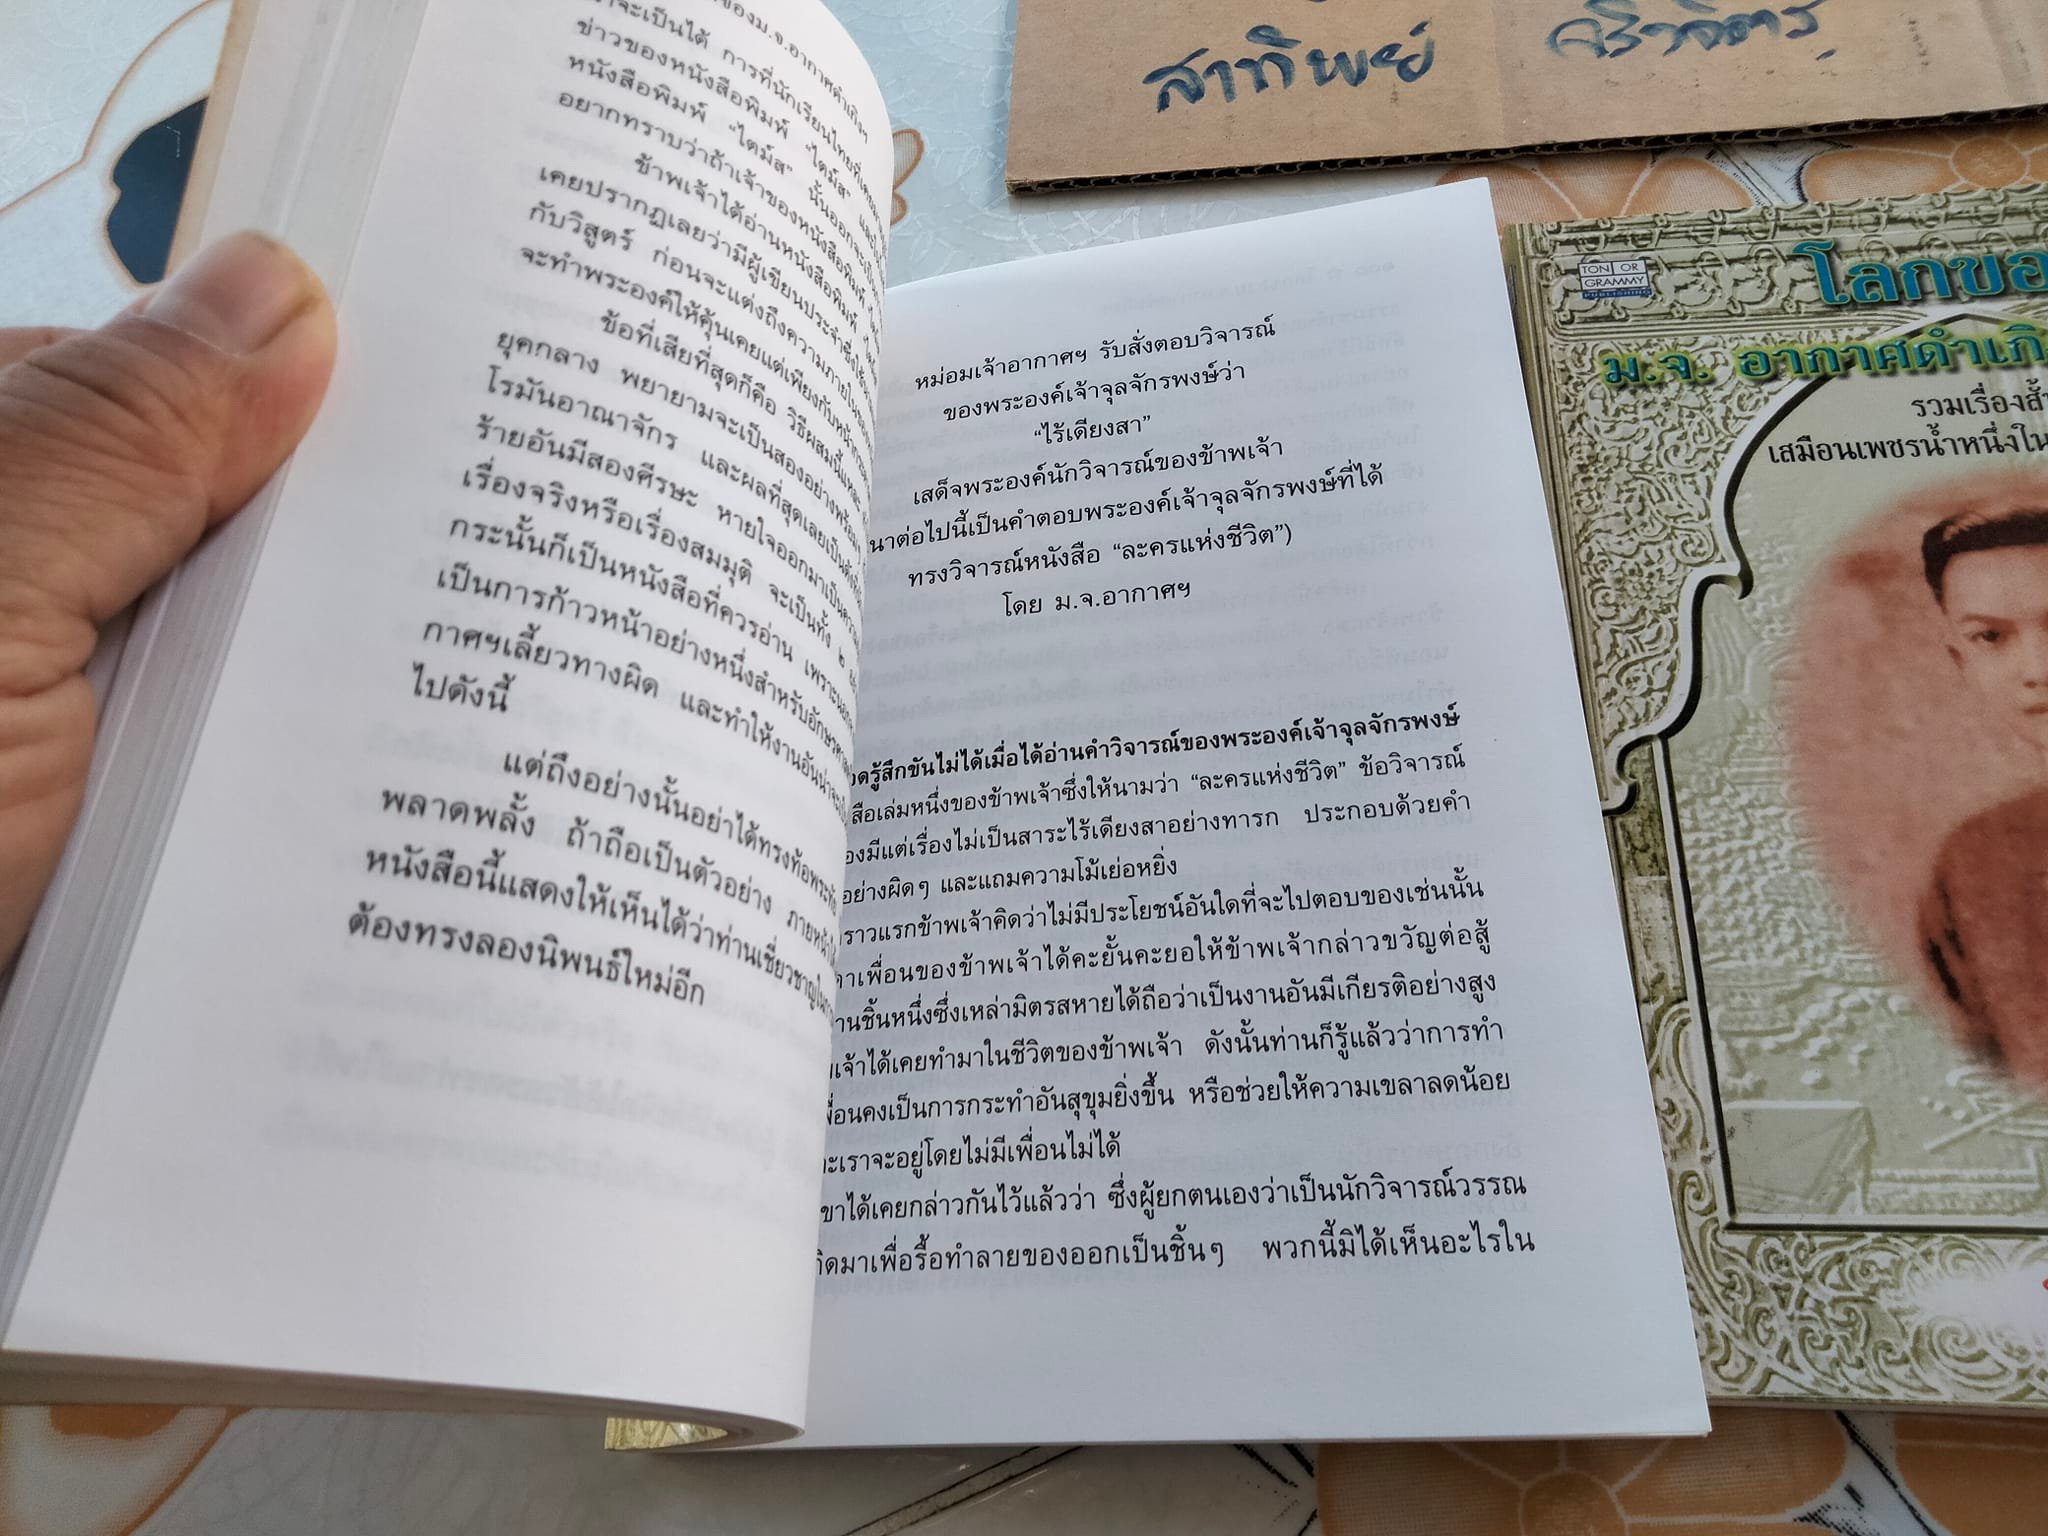 สาทิพย์
ของม.จ.อากาศดำเกิงฯ
าจะเป็นได้ การที่นักเรียนไทยที่
ข่าวของหนังสือพิมพ์ “ไตม์ส”
หนังสือพิมพ์ “ไตม์ส” นั้นออกจะ
อยากทราบว่าถ้าเจ้าของหนังสือพิมพ์
ข้าพเจ้าได้อ่านหนังสือพิมพ์
เคยปรากฏเลยว่ามีผู้เขียนประจำซึ่ง
กับวิสูตร์ ก่อนจะแต่งถึงความภายใน
จะทำพระองค์ให้คุ้นเคยแต่เพียงกับหน้า
ข้อที่เสียที่สุดก็คือ วิธีผสมนี้แหละ
ยุคกลาง พยายามจะเป็นสองอย่างพร้อม
โรมันอาณาจักร และผลที่สุดเลยเป็น
ร้ายอันมีสองศีรษะ หายใจออกมาเป็น
เรื่องจริงหรือเรื่องสมมุติ จะเป็นทั้ง ๒
กระนั้นก็เป็นหนังสือที่ควรอ่าน เพราะ
เป็นการก้าวหน้าอย่างหนึ่งสำหรับ
กาศฯเลี้ยวทางผิด และทำให้งานอันน่าจะ
ไปดังนี้
แต่ถึงอย่างนั้นอย่าได้ทรงท้อพระทัย
พลาดพลั้ง ถ้าถือเป็นตัวอย่าง ภายหน้า
หนังสือนี้แสดงให้เห็นได้ว่าท่านเชี่ยวชาญใน
ต้องทรงลองนิพนธ์ใหม่อีก
หม่อมเจ้าอากาศฯ รับสั่งตอบวิจารณ์
ของพระองค์เจ้าจุลจักรพงษ์ว่า
“ไร้เดียงสา”
เสด็จพระองค์นักวิจารณ์ของข้าพเจ้า
นาต่อไปนี้เป็นคำตอบพระองค์เจ้าจุลจักรพงษ์ที่ได้
ทรงวิจารณ์หนังสือ “ละครแห่งชีวิต”)
โดย ม.จ.อากาศฯ
ดรู้สึกขันไม่ได้เมื่อได้อ่านคำวิจารณ์ของพระองค์เจ้าจุลจักรพงษ์
สือเล่มหนึ่งของข้าพเจ้าซึ่งให้นามว่า “ละครแห่งชีวิต” ข้อวิจารณ์
องมีแต่เรื่องไม่เป็นสาระไร้เดียงสาอย่างทารก ประกอบด้วยคำ
อย่างผิดๆ และแถมความโม้เย่อหยิ่ง
ราวแรกข้าพเจ้าคิดว่าไม่มีประโยชน์อันใดที่จะไปตอบของเช่นนั้น
าเพื่อนของข้าพเจ้าได้คะยั้นคะยอให้ข้าพเจ้ากล่าวขวัญต่อสู้
านชิ้นหนึ่งซึ่งเหล่ามิตรสหายได้ถือว่าเป็นงานอันมีเกียรติอย่างสูง
เจ้าได้เคยทำมาในชีวิตของข้าพเจ้า ดังนั้นท่านก็รู้แล้วว่าการทำ
พื่อนคงเป็นการกระทำอันสุขุมยิ่งขึ้น หรือช่วยให้ความเขลาลดน้อย
ะเราจะอยู่โดยไม่มีเพื่อนไม่ได้
ขาได้เคยกล่าวกันไว้แล้วว่า ซึ่งผู้ยกตนเองว่าเป็นนักวิจารณ์วรรณ
กิดมาเพื่อรื้อทำลายของออกเป็นชิ้นๆ พวกนี้มิได้เห็นอะไรใน
TON OR
GRAMMY
PUBLISHING
โลกขอ
ม.จ. อากาศดำเกิ
รวมเรื่องสั้
เสมือนเพชรน้ำหนึ่งใน